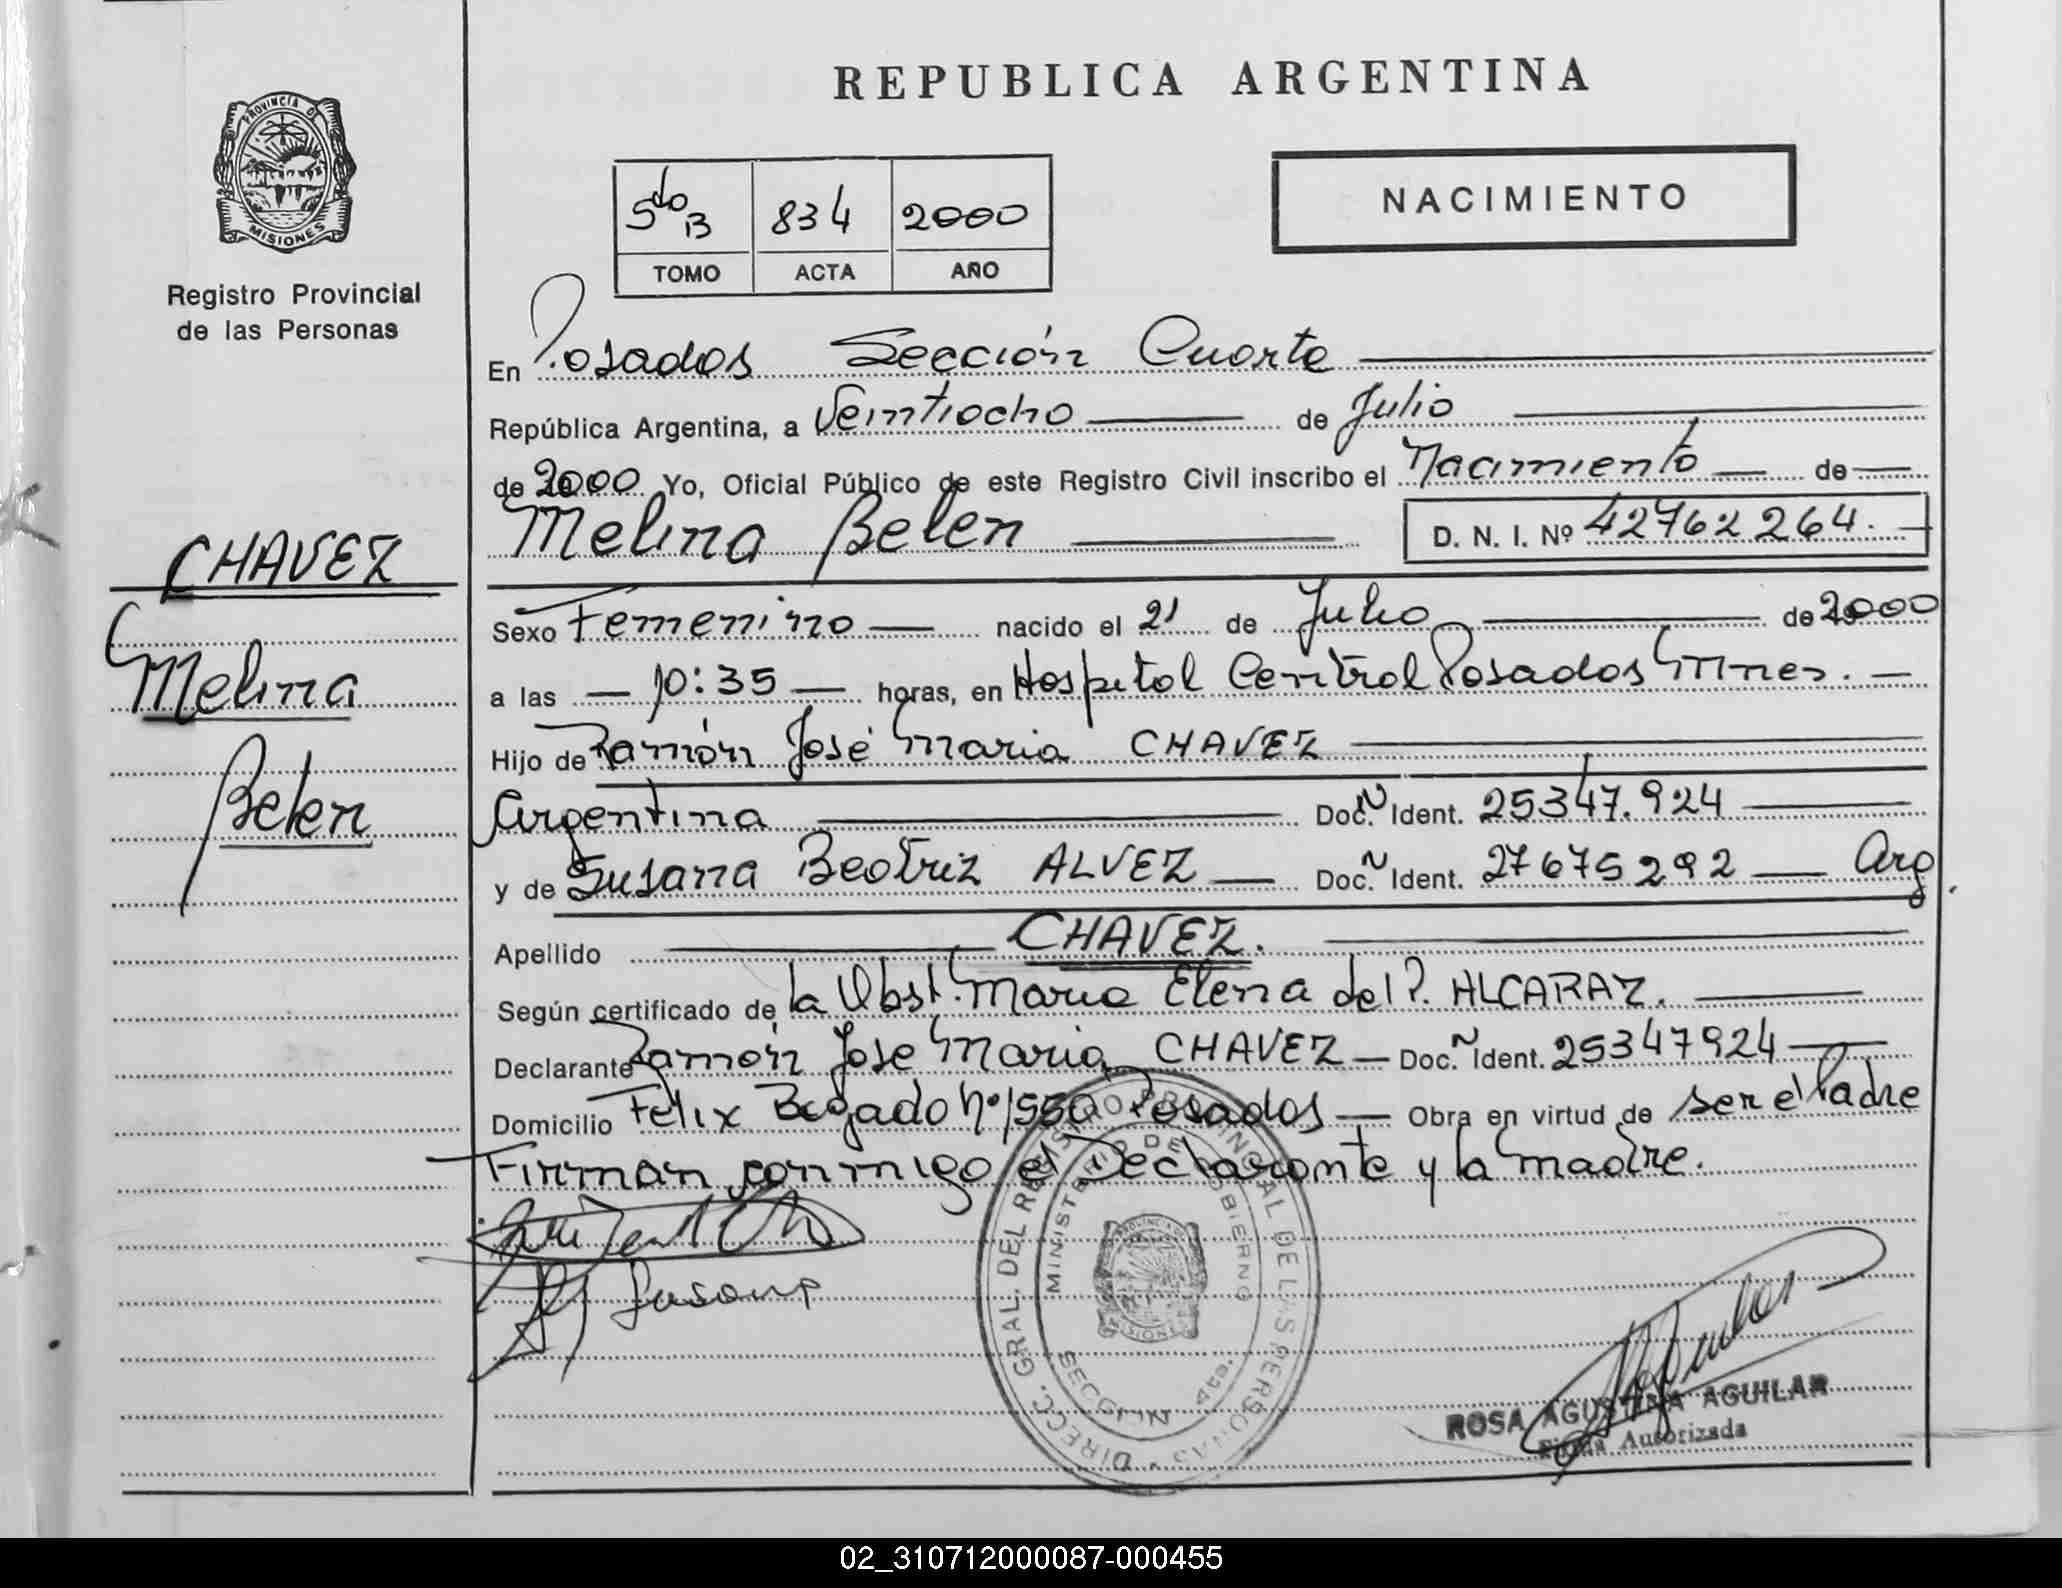 REPUBLICA ARGENTINA
PROVINCIA DE MISIONES
Registro Provincial
de las Personas
NACIMIENTO
5to B 834 2000
TOMO ACTA AÑO
En Posadas Sección Cuarta
República Argentina, a Veintiocho de Julio
de 2000 Yo, Oficial Público de este Registro Civil inscribo el Nacimiento de
Melina Belen D. N. I. Nº 42762264.
CHAVEZ
Melina
Belen
Sexo Femenino nacido el 21 de Julio de 2000
a las 10:35 horas, en Hospital Central Posadas Mnes.
Hijo de Ramón José Maria CHAVEZ
Argentina Doc. N Ident. 25347.924
y de Susana Beatriz ALVEZ Doc. N Ident. 27675292 Arg.
Apellido CHAVEZ.
Según certificado de la Obst. Maria Elena del P. ALCARAZ.
Declarante Ramón Jose Maria CHAVEZ Doc. N Ident. 25347924
Domicilio Felix Bogado Nº 1550 Posadas Obra en virtud de ser el Padre
Firman conmigo el Declarante y la madre.
Susana
DIRECC. GRAL. DEL REGISTRO PROVINCIAL DE LAS PERSONAS
MINISTERIO DE GOBIERNO
PROVINCIA DE MISIONES
SECCION 4ta.
ROSA AGUSTINA AGUILAR
Firma Autorizada
02_310712000087-000455